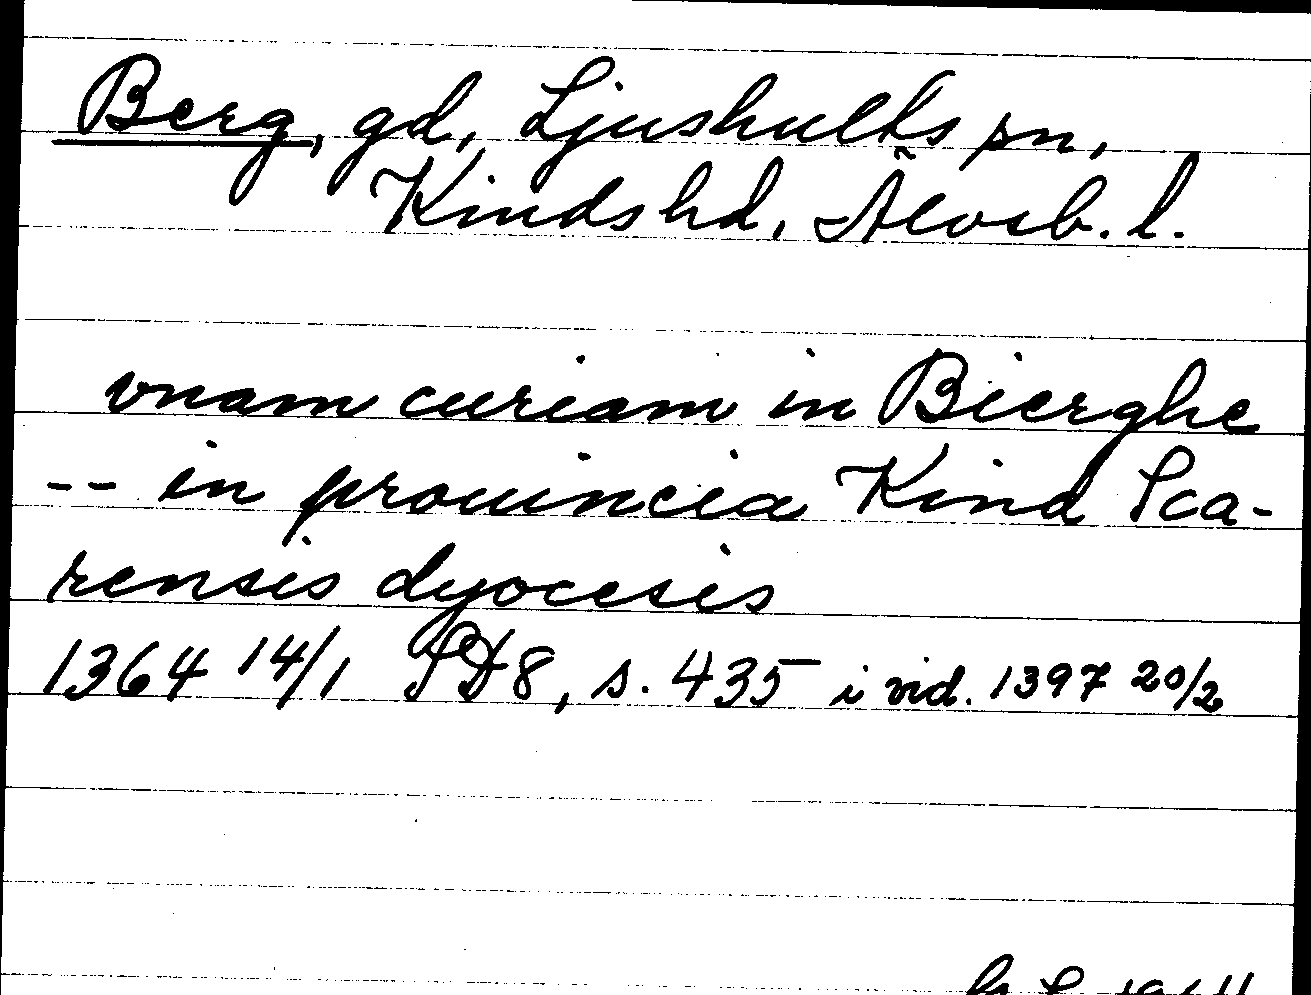 Berg, gd, Ljushults sn,
Kinds hd, Älvsb. l.
vnam curiam in Bierghe
-- in prouincia Kind Sca-
rensis dyocesis
1364 14/1 SD8, s. 435 i vid. 1397 20/2